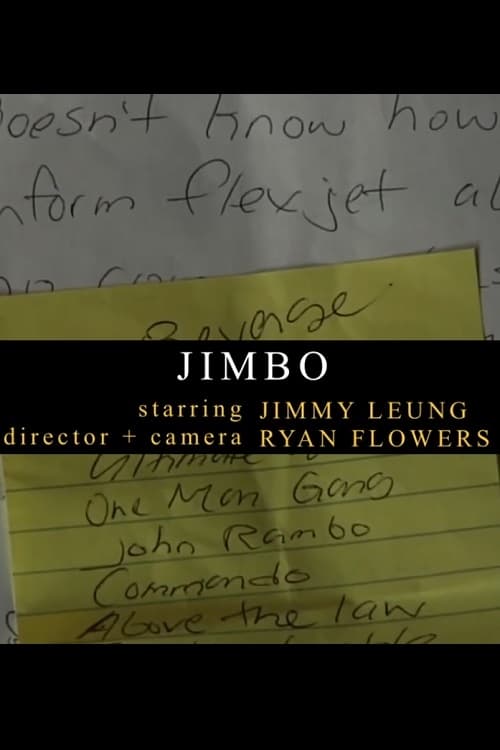 doesn't know how
inform flexjet
Revenge
JIMBO
starring JIMMY LEUNG
director + camera RYAN FLOWERS
Ultimate
One Man Gang
John Rambo
Commando
Above the law